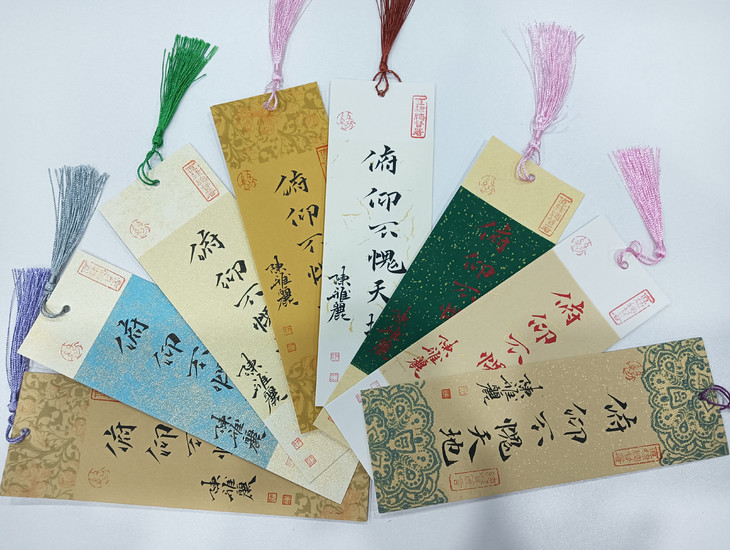 俯仰不愧
陳雅麗
俯仰不愧
陳雅麗
俯仰不愧
陳雅麗
俯仰不愧
陳雅麗
俯仰不愧天地
陳雅麗
俯仰不愧
陳雅麗
俯仰不愧
陳雅麗
俯仰不愧天地
陳雅麗